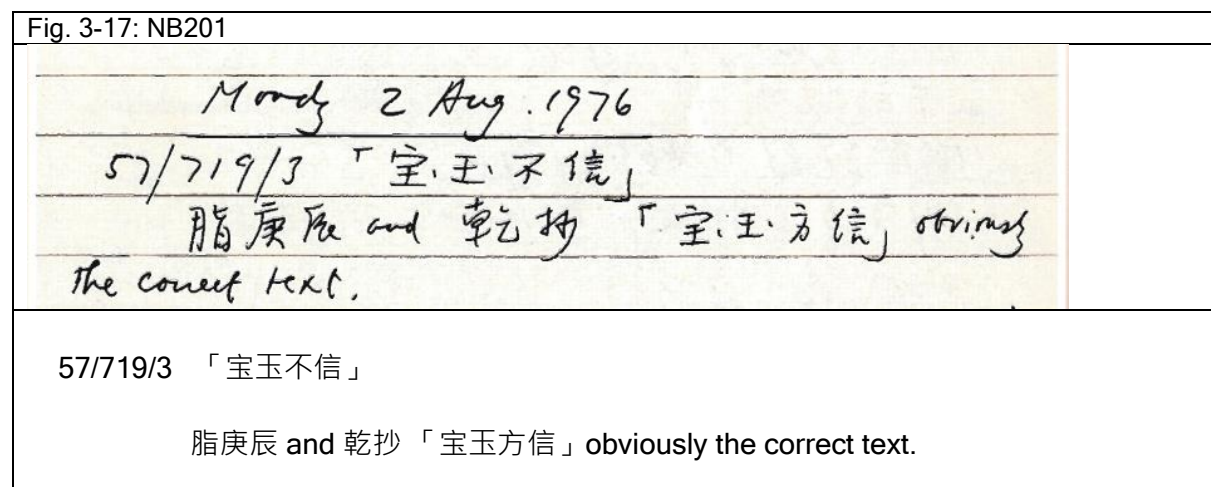 Fig. 3-17: NB201
Mondy 2 Aug. 1976
57/719/3 「宝玉不信」
脂庚辰 and 乾抄 「宝玉方信」 obviously
the correct text.
57/719/3 「宝玉不信」
脂庚辰 and 乾抄 「宝玉方信」obviously the correct text.